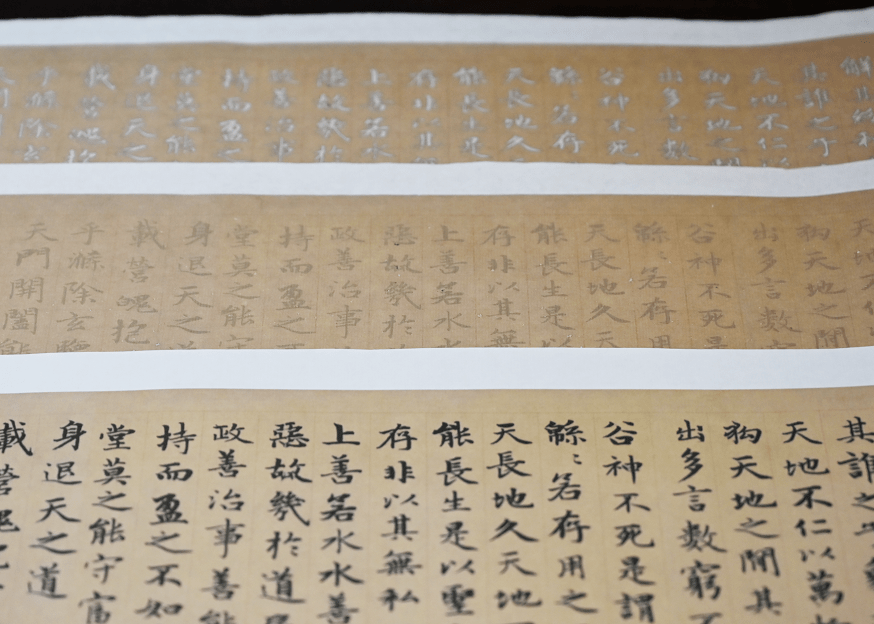 其誰之子
天地不仁以
狗天地之間
出多言數
谷神不死
緜〻若存
天長地久
能長生是
存非以其
上善若水
惡故幾於
政善治事
持而盈之
堂莫之能
身退天之
載營魄抱
乎滌除玄
天地
狗天地之間
出多言數
谷神不死是
緜〻若存用
天長地久天
能長生是以
存非以其無
上善若水水
惡故幾於
政善治事
持而盈之
堂莫之能守
身退天之道
載營魄抱
乎滌除玄覽
天門開闔能
其誰之子
天地不仁以萬
狗天地之間其
出多言數窮不
谷神不死是謂
緜〻若存用之
天長地久天地
能長生是以聖
存非以其無私
上善若水水善
惡故幾於道
政善治事善能
持而盈之不如
堂莫之能守富
身退天之道
載營魄